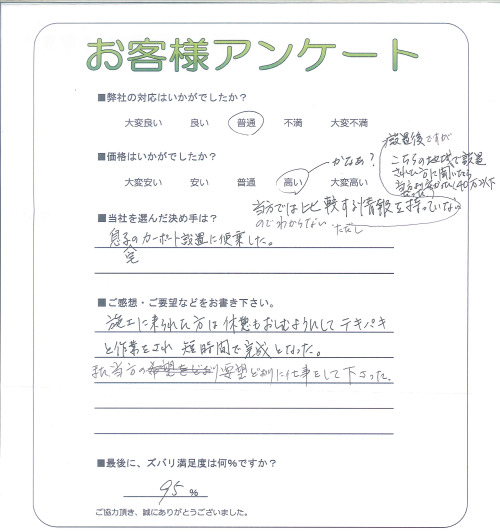 お客様アンケート
■弊社の対応はいかがでしたか？
大変良い　良い　普通　不満　大変不満
■価格はいかがでしたか？
大変安い　安い　普通　高い　大変高い
かなあ？
設置後ですが
こちらの地域で設置
された方に聞いたら
40万以下
当方では比較する情報を持っていない
のでわからない　ただし
■当社を選んだ決め手は？
息子宅のカーポート設置に便乗した。
■ご感想・ご要望などをお書き下さい。
施工に来られた方は休憩もおしむようにしてテキパキ
と作業をされ短時間で完成となった。
又当方の要望どおりに仕事をして下さった。
■最後に、ズバリ満足度は何％ですか？
95 %
ご協力頂き、誠にありがとうございました。